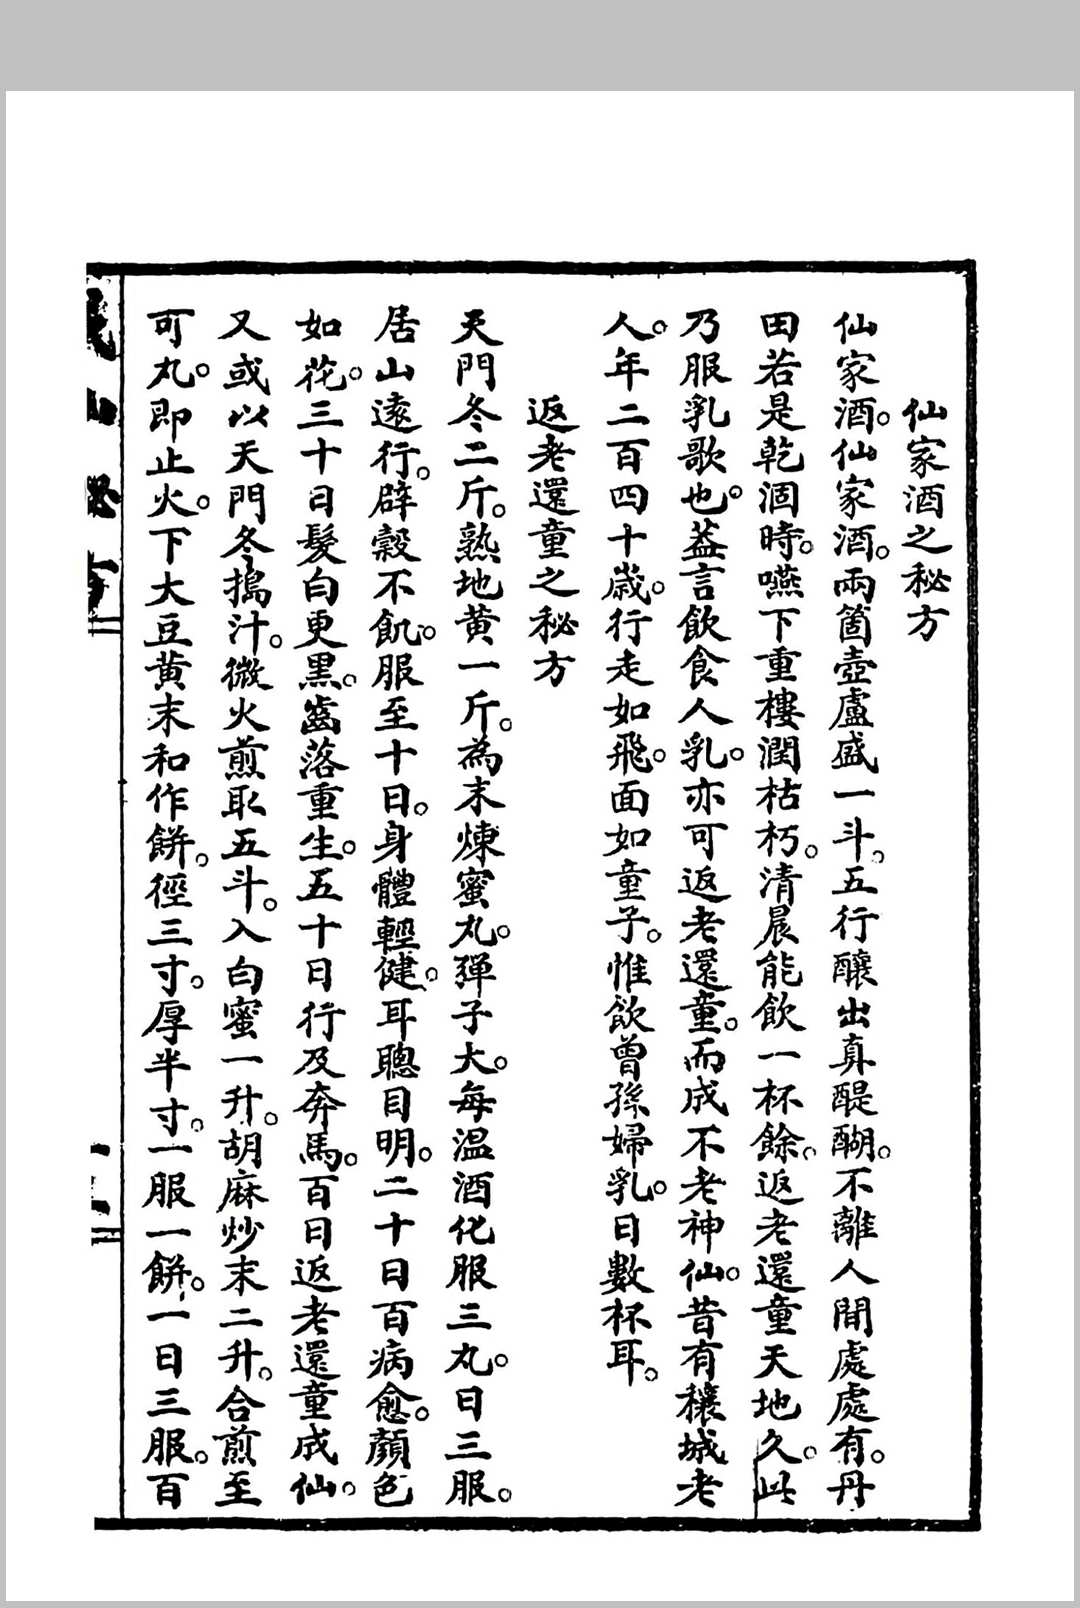 仙家酒之秘方
仙家酒。仙家酒。兩箇壺盧盛一斗。五行釀出真醍醐。不離人間處處有。丹
田若是乾涸時。嚥下重樓潤枯朽。清晨能飲一杯餘。返老還童天地久。此
乃服乳歌也。葢言飲食人乳。亦可返老還童。而成不老神仙。昔有穰城老
人。年二百四十歲。行走如飛。面如童子。惟飲曾孫婦乳。日數杯耳。
返老還童之秘方
天門冬二斤。熟地黃一斤。為末煉蜜丸。彈子大。每温酒化服三丸。日三服。
居山遠行。辟穀不飢。服至十日。身體輕健。耳聰目明。二十日百病愈。顏色
如花。三十日髮白更黑。齒落重生。五十日行及奔馬。百日返老還童成仙。
又或以天門冬搗汁。微火煎取五斗。入白蜜一升。胡麻炒末二升。合煎至
可丸。即止火。下大豆黃末和作餅。徑三寸。厚半寸。一服一餅。一日三服。百